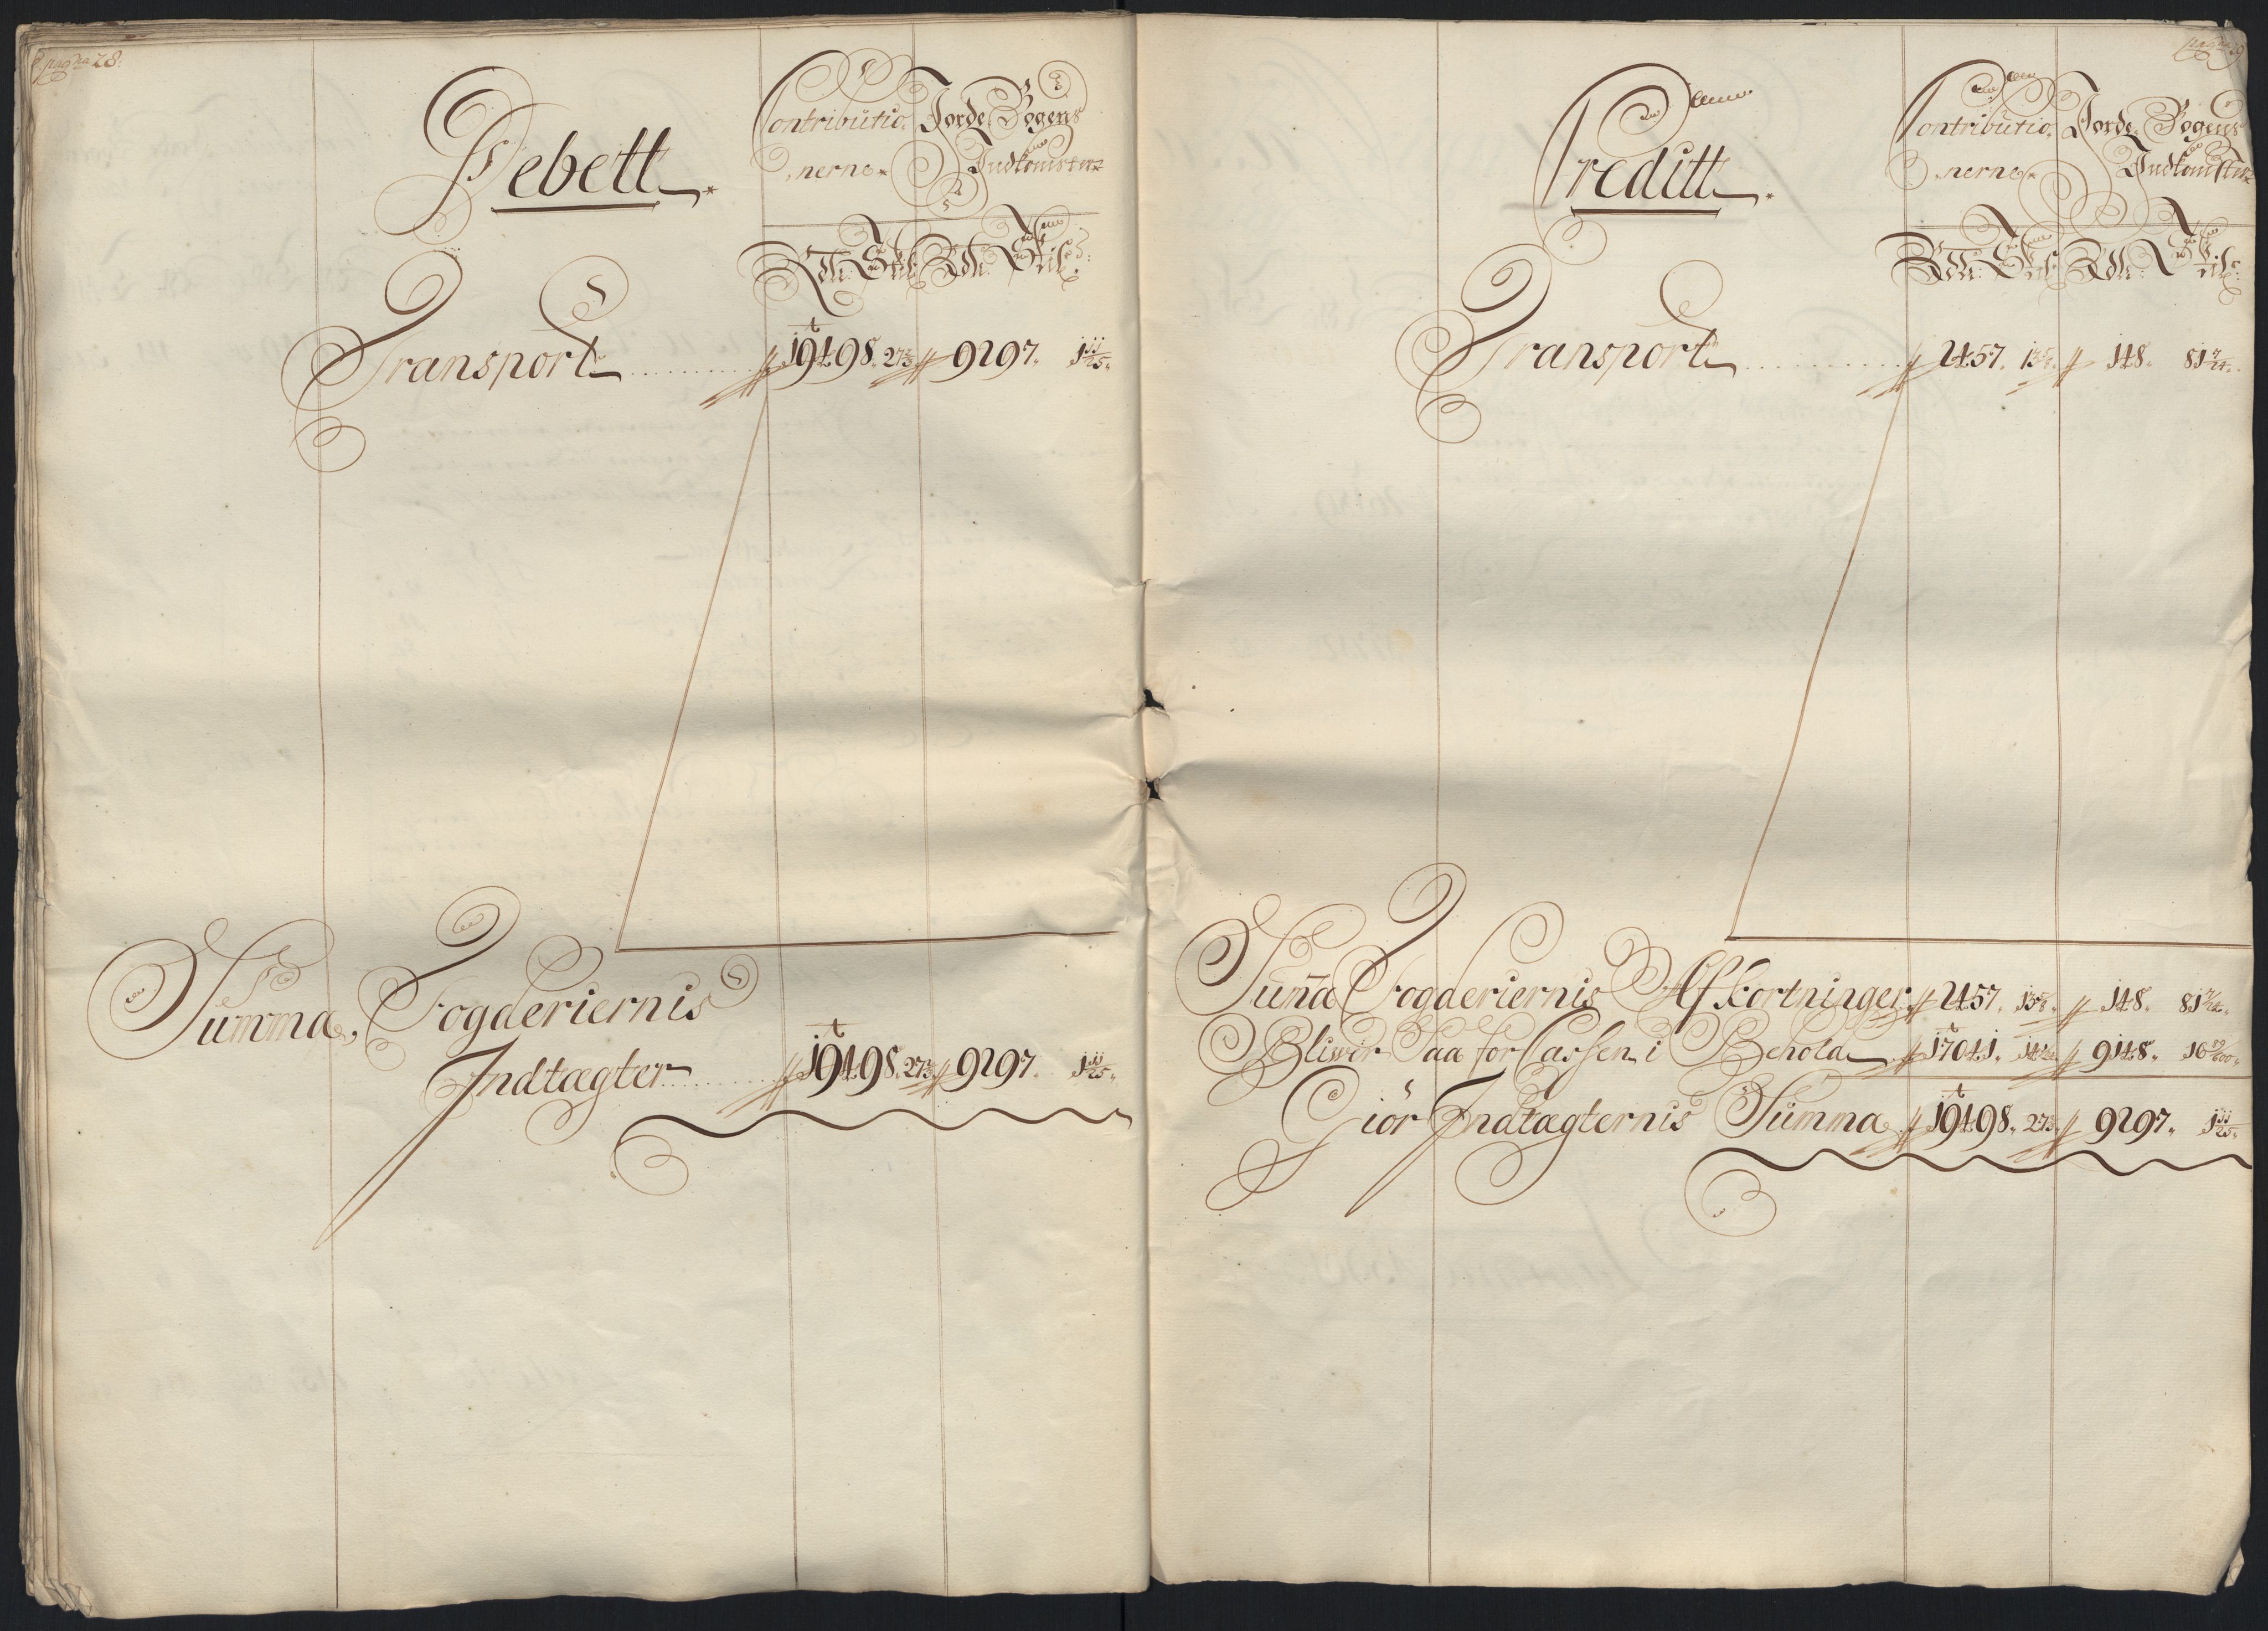 pagna 28.
Debett
Contributio- Jorde Bogens
nerne Indkomster
Rdlr: Skil: Rdlr: Skil:
Transport ........... 19498. 27 2/3 9297. 1 11/25.
Summa, Fogderiernis
Indtægter ........... 19498. 27 2/3 9297. 1 11/25.
pagna 29
Creditt
Contributio- Jorde Bogens
nerne Indkomster
Rdlr: Skil: Rdlr: Skil:
Transport ........... 2457. 13 5/8. 148. 81 7/24.
Sum̅a Fogderiernis Afkortninger 2457. 13 5/8. 148. 81 7/24.
Bliwer Saa for Cassen i Behold 17041. 14 1/24 9148. 16 89/600.
Giör Indtægternis Summa 19498. 27 2/3. 9297. 1 11/25.